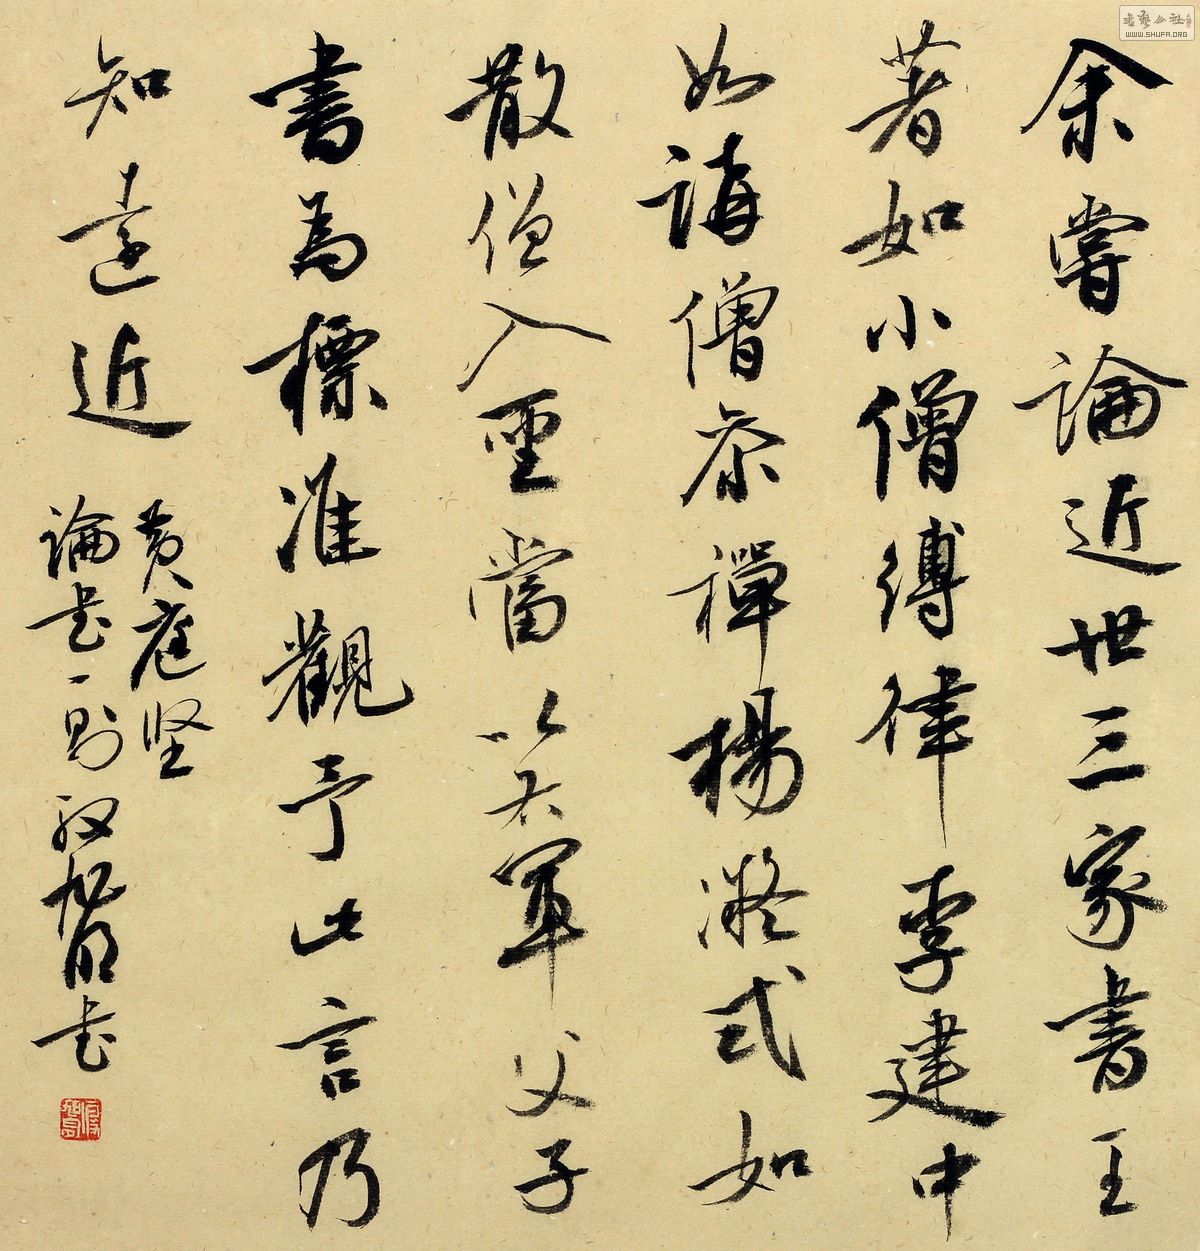 余嘗論近世三家書王
著如小僧縛律李建中
如講僧叅禪楊凝式如
散僧入聖當以右軍父子
書為標准觀予此言乃
知遠近
黄庭坚
論書一則 書
書藝公社
WWW.SHUFA.ORG